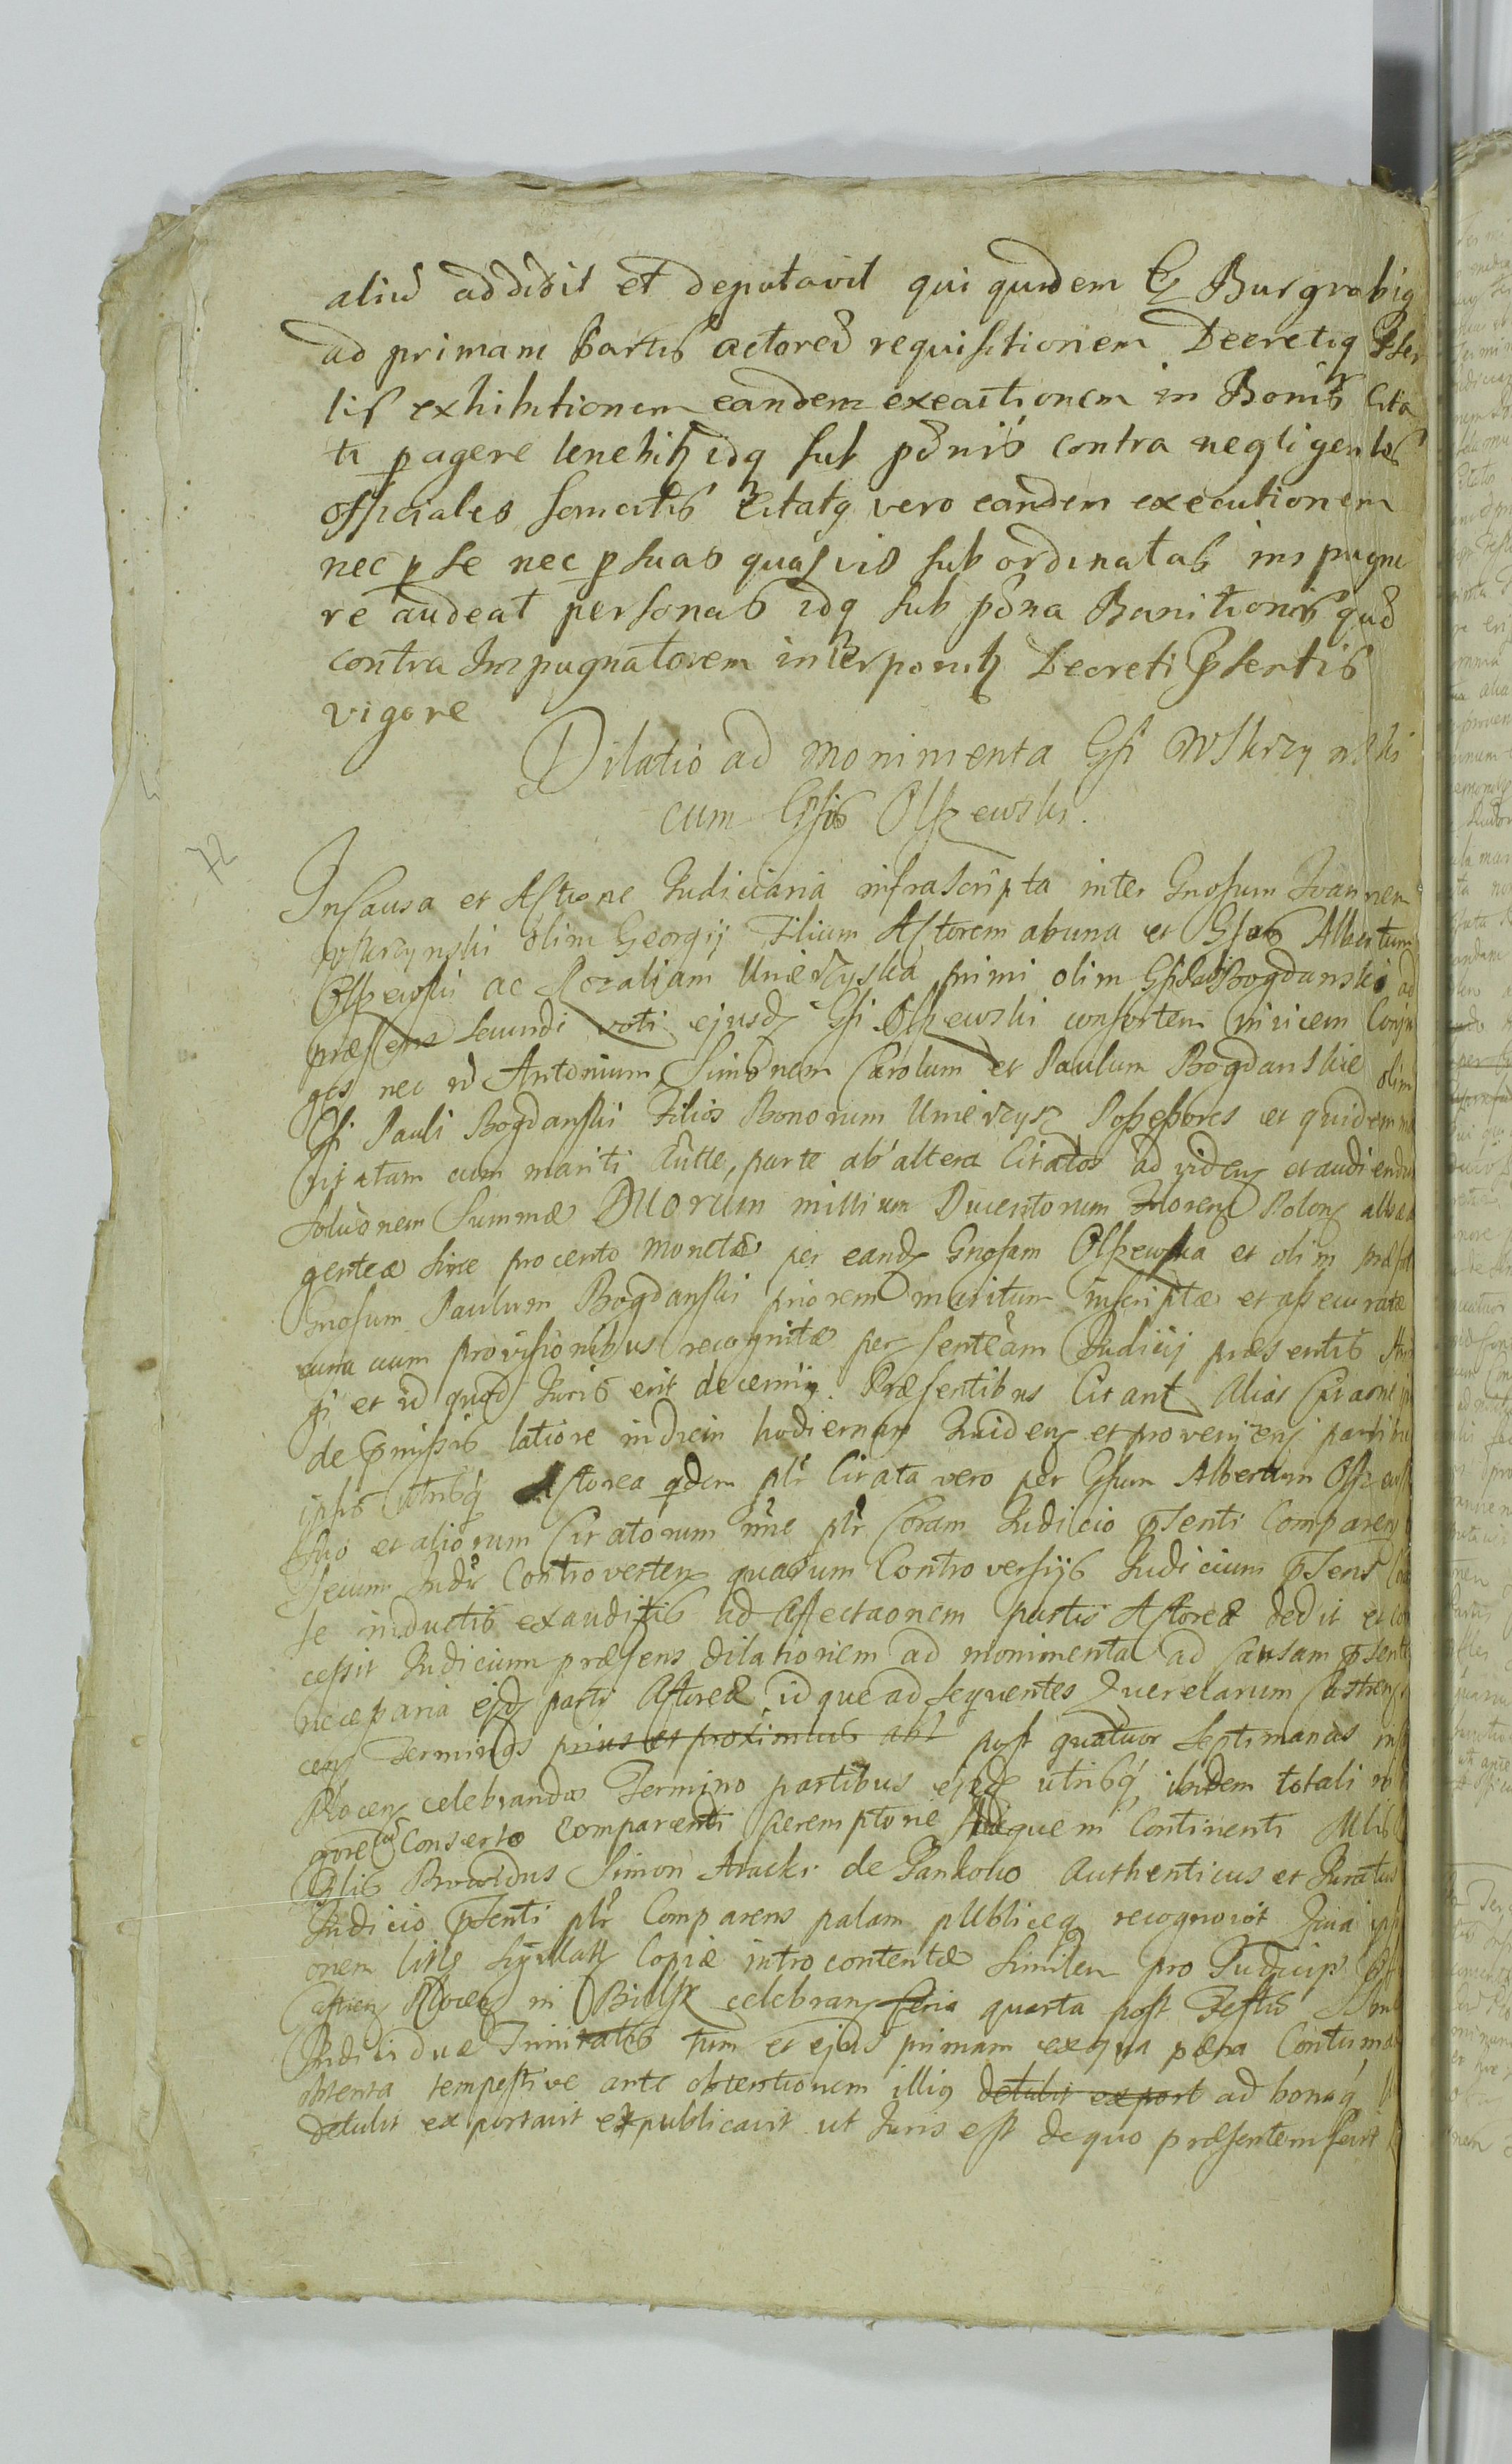 aliud addidit et deputavit qui quidem G Burgrabiq
ad primam Partis actoreae requisitionem Decretiq Pser
tis exhibitionem eandem exeactionem in Bonis Cita
ti pagere tenebitz idq sub paenis contra negligentes
officiales sancitis Citatq vero eandem executionem
nec p se nec p suas quasvis subordinatas impugna
re audeat personas idq sub paena Banitionis quae
contra Impugnatorem interponitz Decreti Psentis
vigore
Dilatio ad monimenta Gsi Wskrzynski
cum Gsis Olszewski.
72
In Causa et Actione Judiciaria infrascripta inter Gnosum Joannem
Wskrzynski olim Georgij Filium Actorem ab una et Gsos Albertum
Olszewski ac Rozaliam Umierzyska primi olim Gsi Pauli Bogdanski ad
praesens secundi voti ejusdz Gsi Olszewski consortem invicem Conju
ges nec n Antonium, Simonem Carolum et Paulum Bogdanskie olim
Gsi Pauli Bogdanski Filios Bonorum Umierzysz Possessores et quidem
citatam cum mariti tutte, parte ab altera Citatos ad videnz et audiendum
solutionem Summae Duorum millium Ducentorum Florenz Polonz albae
genteae sine procento monetae per eandz Gnosam Olszewska et olim
Gnosum Paulum Bogdanski priorem maritum inscriptae et assecuratae
una cum provisionibus recognitae per senteam Judicij praesentis
et id quod Juris erit decerniq. Praesentibus Citant alias Citaone
de Pmissis latiore in diem hodiernam Quidenz et provenienz partibus
ipsis utrisq Actorea qdem plr Citata vero per Gsum Albertum Olszewski
suo et aliorum Citatorum nne plr Coram Judicio Psenti Comparenz
secum Judr Controvertenz quarum Controversijs Judicium Psens
se inductis exauditis ad affectaonem partis Actoreae dedit et con
cessit Judicium praesens dilationem ad monimenta ad Causam Psentem
necessaria ejdz parti Actoreae idque ad sequentes Querelarum Castrenz
cenz Terminos prius et proximius abl post quatuor septimanas
Plocenz celebrandos Termino partibus ejsdz utrisq ibidem totali
gore conserto comparendi peremptorie Continenti Mlis
Glis Providus Simon Aracki de Jankowo Authenticus et Juratus
Judicio Psenti plr Comparens palam publiceq recognovit Quia
onem litis sigillatz Copiae intro contentae similem pro Judicijs
Castrenz Plocenz in Bielsk celebranz feria quarta post Festum
Individuae Trinitatis tum et ejus primam ex qua paena Contumac
obtenta tempestive ante obtentionem illiq detulit export ad bonaq
detulit exportavit expublicavit ut Juris est de quo praesentem fecit